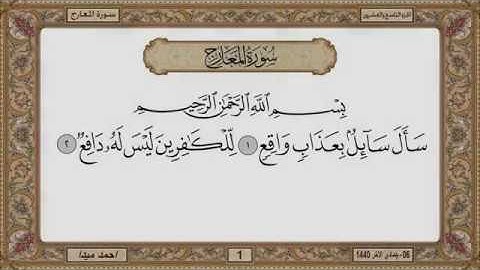 الجزء التاسع والعشرون
سورة المعارج
سُورَةُ الْمَعَارِجِ
بِسْمِ اللَّهِ الرَّحْمَٰنِ الرَّحِيمِ
سَأَلَ سَآئِلٌۢ بِعَذَابٍ وَاقِعٍ ١ لِّلْكَٰفِرِينَ لَيْسَ لَهُۥ دَافِعٌ ٢
06 - جمادى الآخر 1440
1
أحمد ميديا